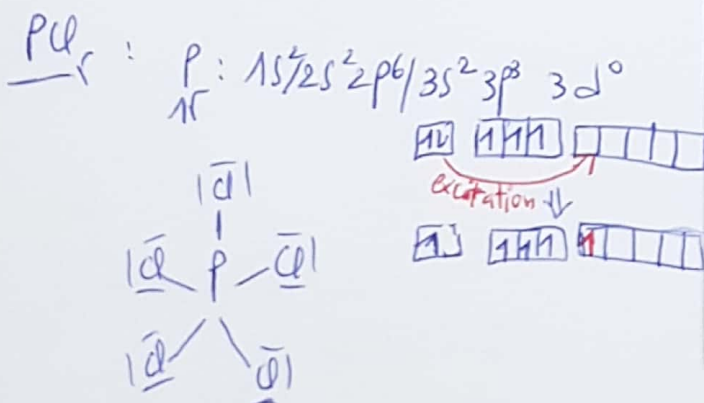 PCl₅ : P : 1s²/2s² 2p⁶/3s² 3p³ 3d⁰
15
↑↓ ↑ ↑ ↑
excitation ⇓
↑ ↑ ↑ ↑ ↑
|Cl|
|Cl P Cl|
|Cl Cl|